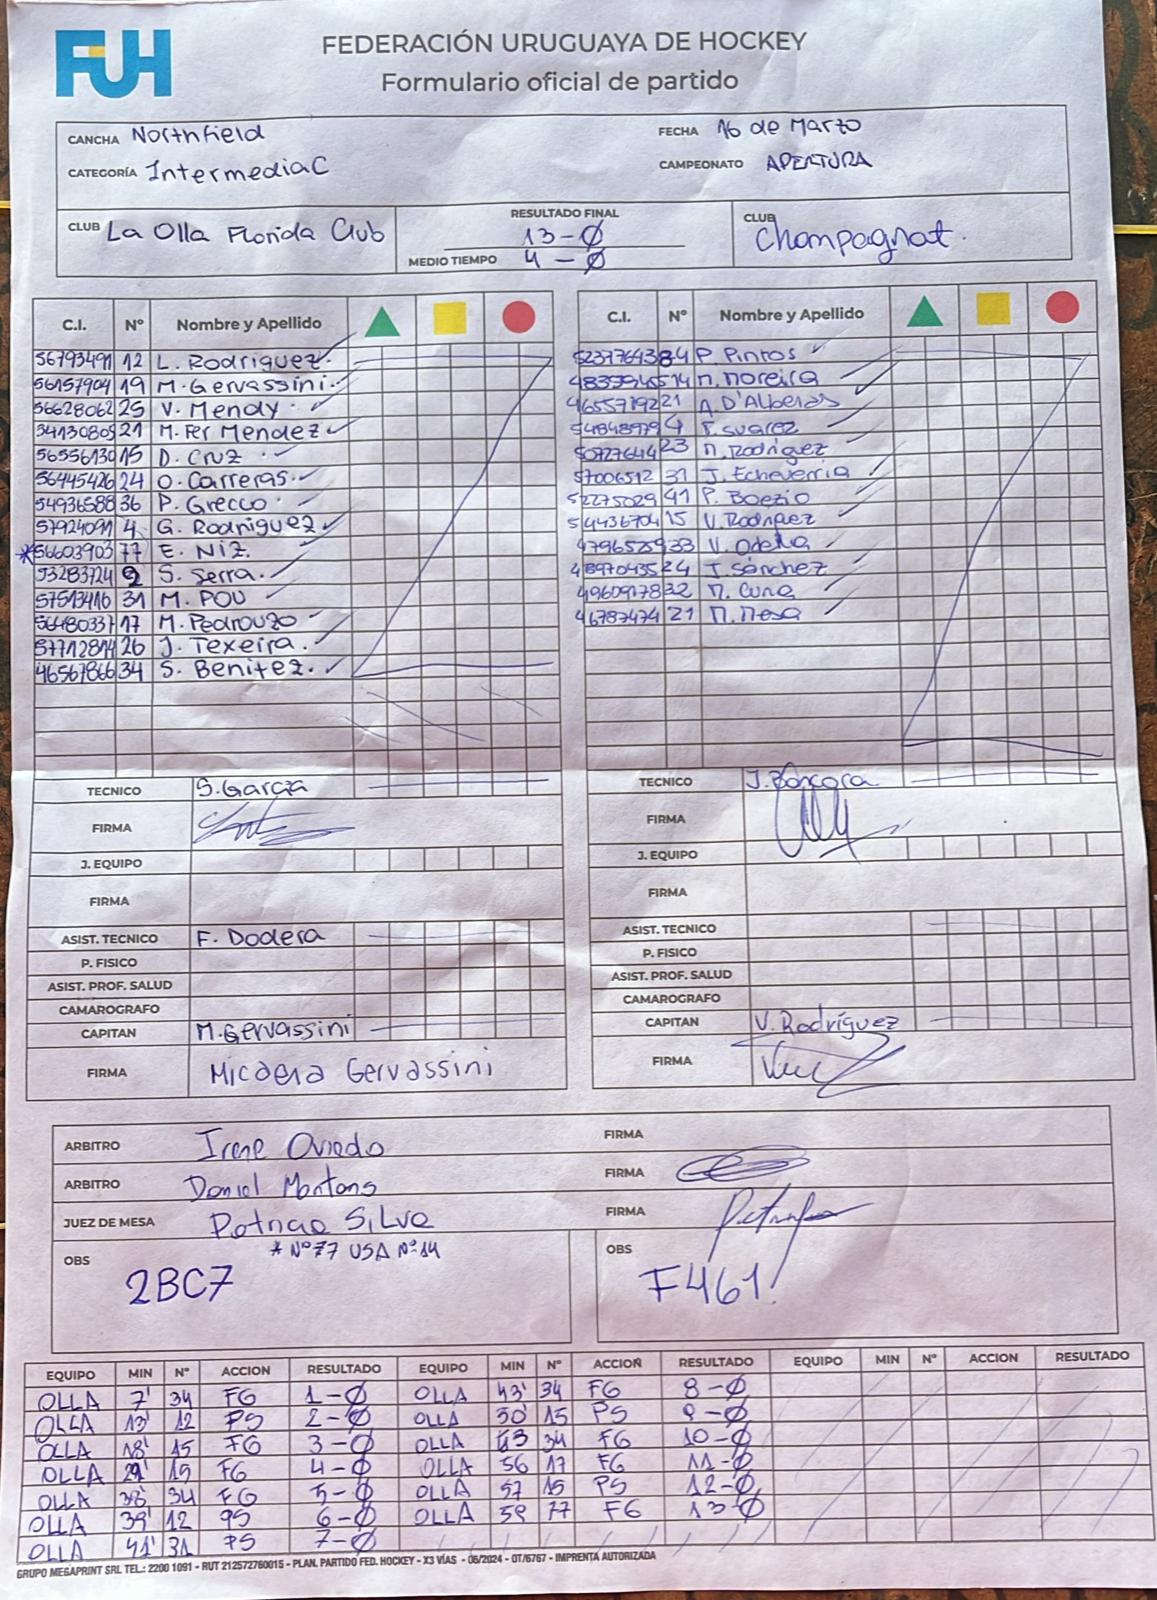 FUH
FEDERACIÓN URUGUAYA DE HOCKEY
Formulario oficial de partido
CANCHA Northfield FECHA 16 de Marzo
CATEGORÍA Intermedia C CAMPEONATO APERTURA
CLUB La Olla Florida Club RESULTADO FINAL 13-Ø CLUB Champagnat.
MEDIO TIEMPO 4-Ø
C.I. Nº Nombre y Apellido C.I. Nº Nombre y Apellido
56793491 12 L. Rodriguez 84 P. Pintos
56157904 19 M. Gervassini 14 M. Moreira
56628062 25 V. Mendy 21 A. D'Alberas
34130805 21 M. Fer Mendez 4 F. Suarez
56556130 15 D. Cruz 50727644 23 M. Rodriguez
56445426 24 O. Carreras 57006512 31 J. Echeverria
54936588 36 P. Grecco 52275029 41 P. Boezio
57924091 4 G. Rodriguez 54436704 15 V. Rodriguez
*56603903 77 E. Niz 33 V. Odella
53283724 9 S. Serra 24 J. Sánchez
57513416 31 M. POU 32 M. Cuna
56480337 17 M. Pedrouzo 46787474 21 M. Mesa
57712814 26 J. Texeira
46567866 34 S. Benitez
TECNICO S. García TECNICO
FIRMA FIRMA
J. EQUIPO J. EQUIPO
FIRMA FIRMA
ASIST. TECNICO F. Dodera ASIST. TECNICO
P. FISICO P. FISICO
ASIST. PROF. SALUD ASIST. PROF. SALUD
CAMAROGRAFO CAMAROGRAFO
CAPITAN M. Gervassini CAPITAN V. Rodríguez
FIRMA Micaela Gervassini FIRMA
ARBITRO Irene Oviedo FIRMA
ARBITRO Daniel Montans FIRMA
JUEZ DE MESA Patricia Silva FIRMA
OBS * Nº77 USA Nº14 OBS
2BC7 F461
EQUIPO MIN Nº ACCION RESULTADO EQUIPO MIN Nº ACCION RESULTADO EQUIPO MIN Nº ACCION RESULTADO
OLLA 7' 34 FG 1-Ø OLLA 43' 34 FG 8-Ø
OLLA 13' 12 PS 2-Ø OLLA 50' 15 PS 9-Ø
OLLA 18' 15 FG 3-Ø OLLA 34 FG 10-Ø
OLLA 29' 15 FG 4-Ø OLLA 56 17 FG 11-Ø
OLLA 38' 34 FG 5-Ø OLLA 57 15 PS 12-Ø
OLLA 39' 12 PS 6-Ø OLLA 59 77 FG 13-Ø
OLLA 41' 31 PS 7-Ø
GRUPO MEGAPRINT SRL TEL.: 2200 1091 - RUT 212572760015 - PLAN. PARTIDO FED. HOCKEY - X3 VÍAS - 06/2024 - OT/6767 - IMPRENTA AUTORIZADA